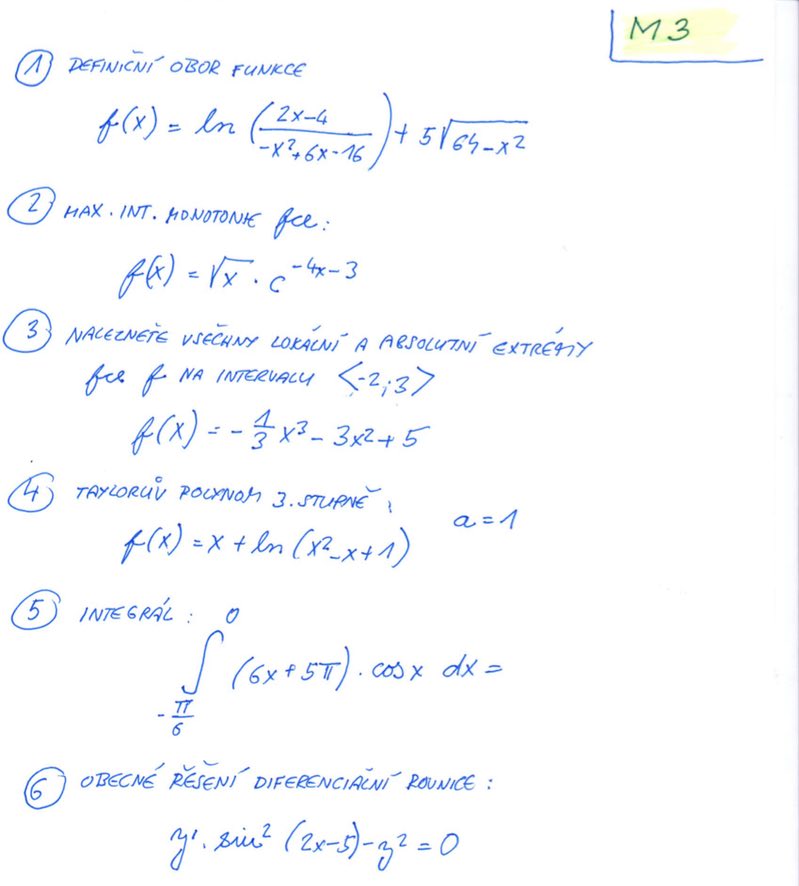 M3
① DEFINIČNÍ OBOR FUNKCE
f(x) = ln ( (2x-4)/(-x²+6x-16) ) + 5√(64-x²)
② MAX. INT. MONOTONIE fce:
f(x) = √x · e^(-4x-3)
③ NALEZNĚTE VŠECHNY LOKÁLNÍ A ABSOLUTNÍ EXTRÉMY
fce f NA INTERVALU <-2;3>
f(x) = -1/3 x³ - 3x² + 5
④ TAYLORŮV POLYNOM 3. STUPNĚ, a = 1
f(x) = x + ln (x²-x+1)
⑤ INTEGRÁL:
∫_(-π/6)^0 (6x+5π) · cos x dx =
⑥ OBECNÉ ŘEŠENÍ DIFERENCIÁLNÍ ROVNICE:
y' · sin² (2x-5) - y² = 0